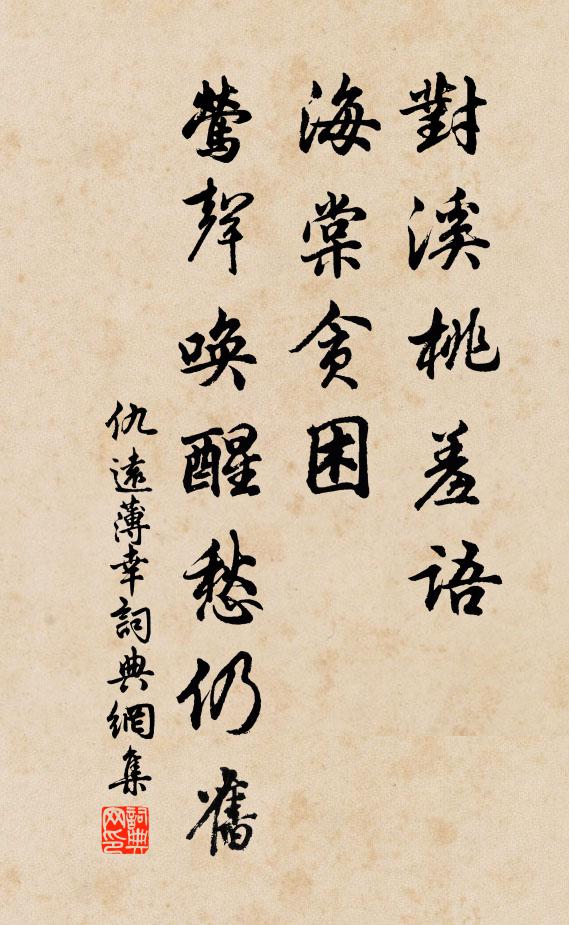 對溪桃羞語
海棠貪困
鶯聲喚醒愁仍舊
仇遠薄幸詞典網集
詞典网印